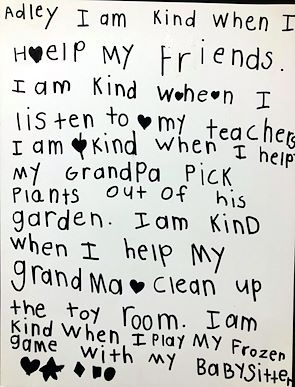 Adley I am Kind when I
H♥elp My friends.
I am Kind when I
listen to ♥ my teachers
I am ♦ Kind when I help
My Grandpa Pick
Plants out of his
garden. I am KinD
when I help My
grandMa ♥ clean up
the toy room. I am
Kind when I Play My Frozen
game with my BaBYSitter
♥★♦■●